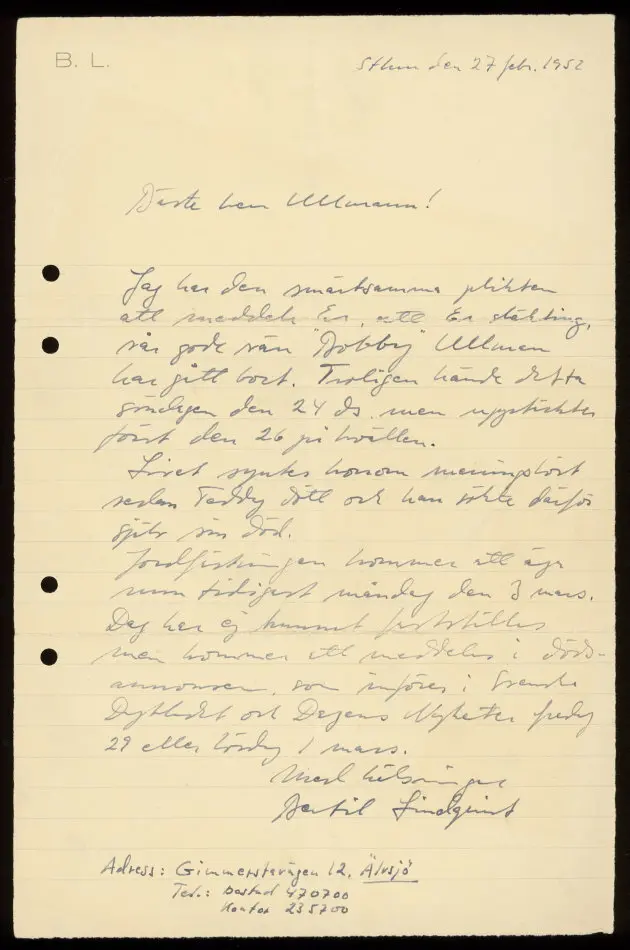 B. L.
Sthlm den 27 febr. 1952
Bäste herr Ullmann!
Jag har den smärtsamma plikten
att meddela Er, att Er släkting,
vår gode vän "Bobby" Ullman
har gått bort. Troligen hände detta
söndagen den 24 ds. men upptäcktes
först den 26 på kvällen.
Livet syntes honom meningslöst
sedan Teddy dött och han sökte därför
själv sin död.
Jordfästningen kommer att äga
rum tidigast måndag den 3 mars.
Dag har ej kunnat fastställas
men kommer att meddelas i döds-
annonsen, som införes i Svenska
Dagbladet och Dagens Nyheter fredag
29 eller lördag 1 mars.
Med hälsningar
Bertil Lindquist
Adress: Gimmerstavägen 12, Älvsjö
Tel.: bostad 470700
Kontor 235700